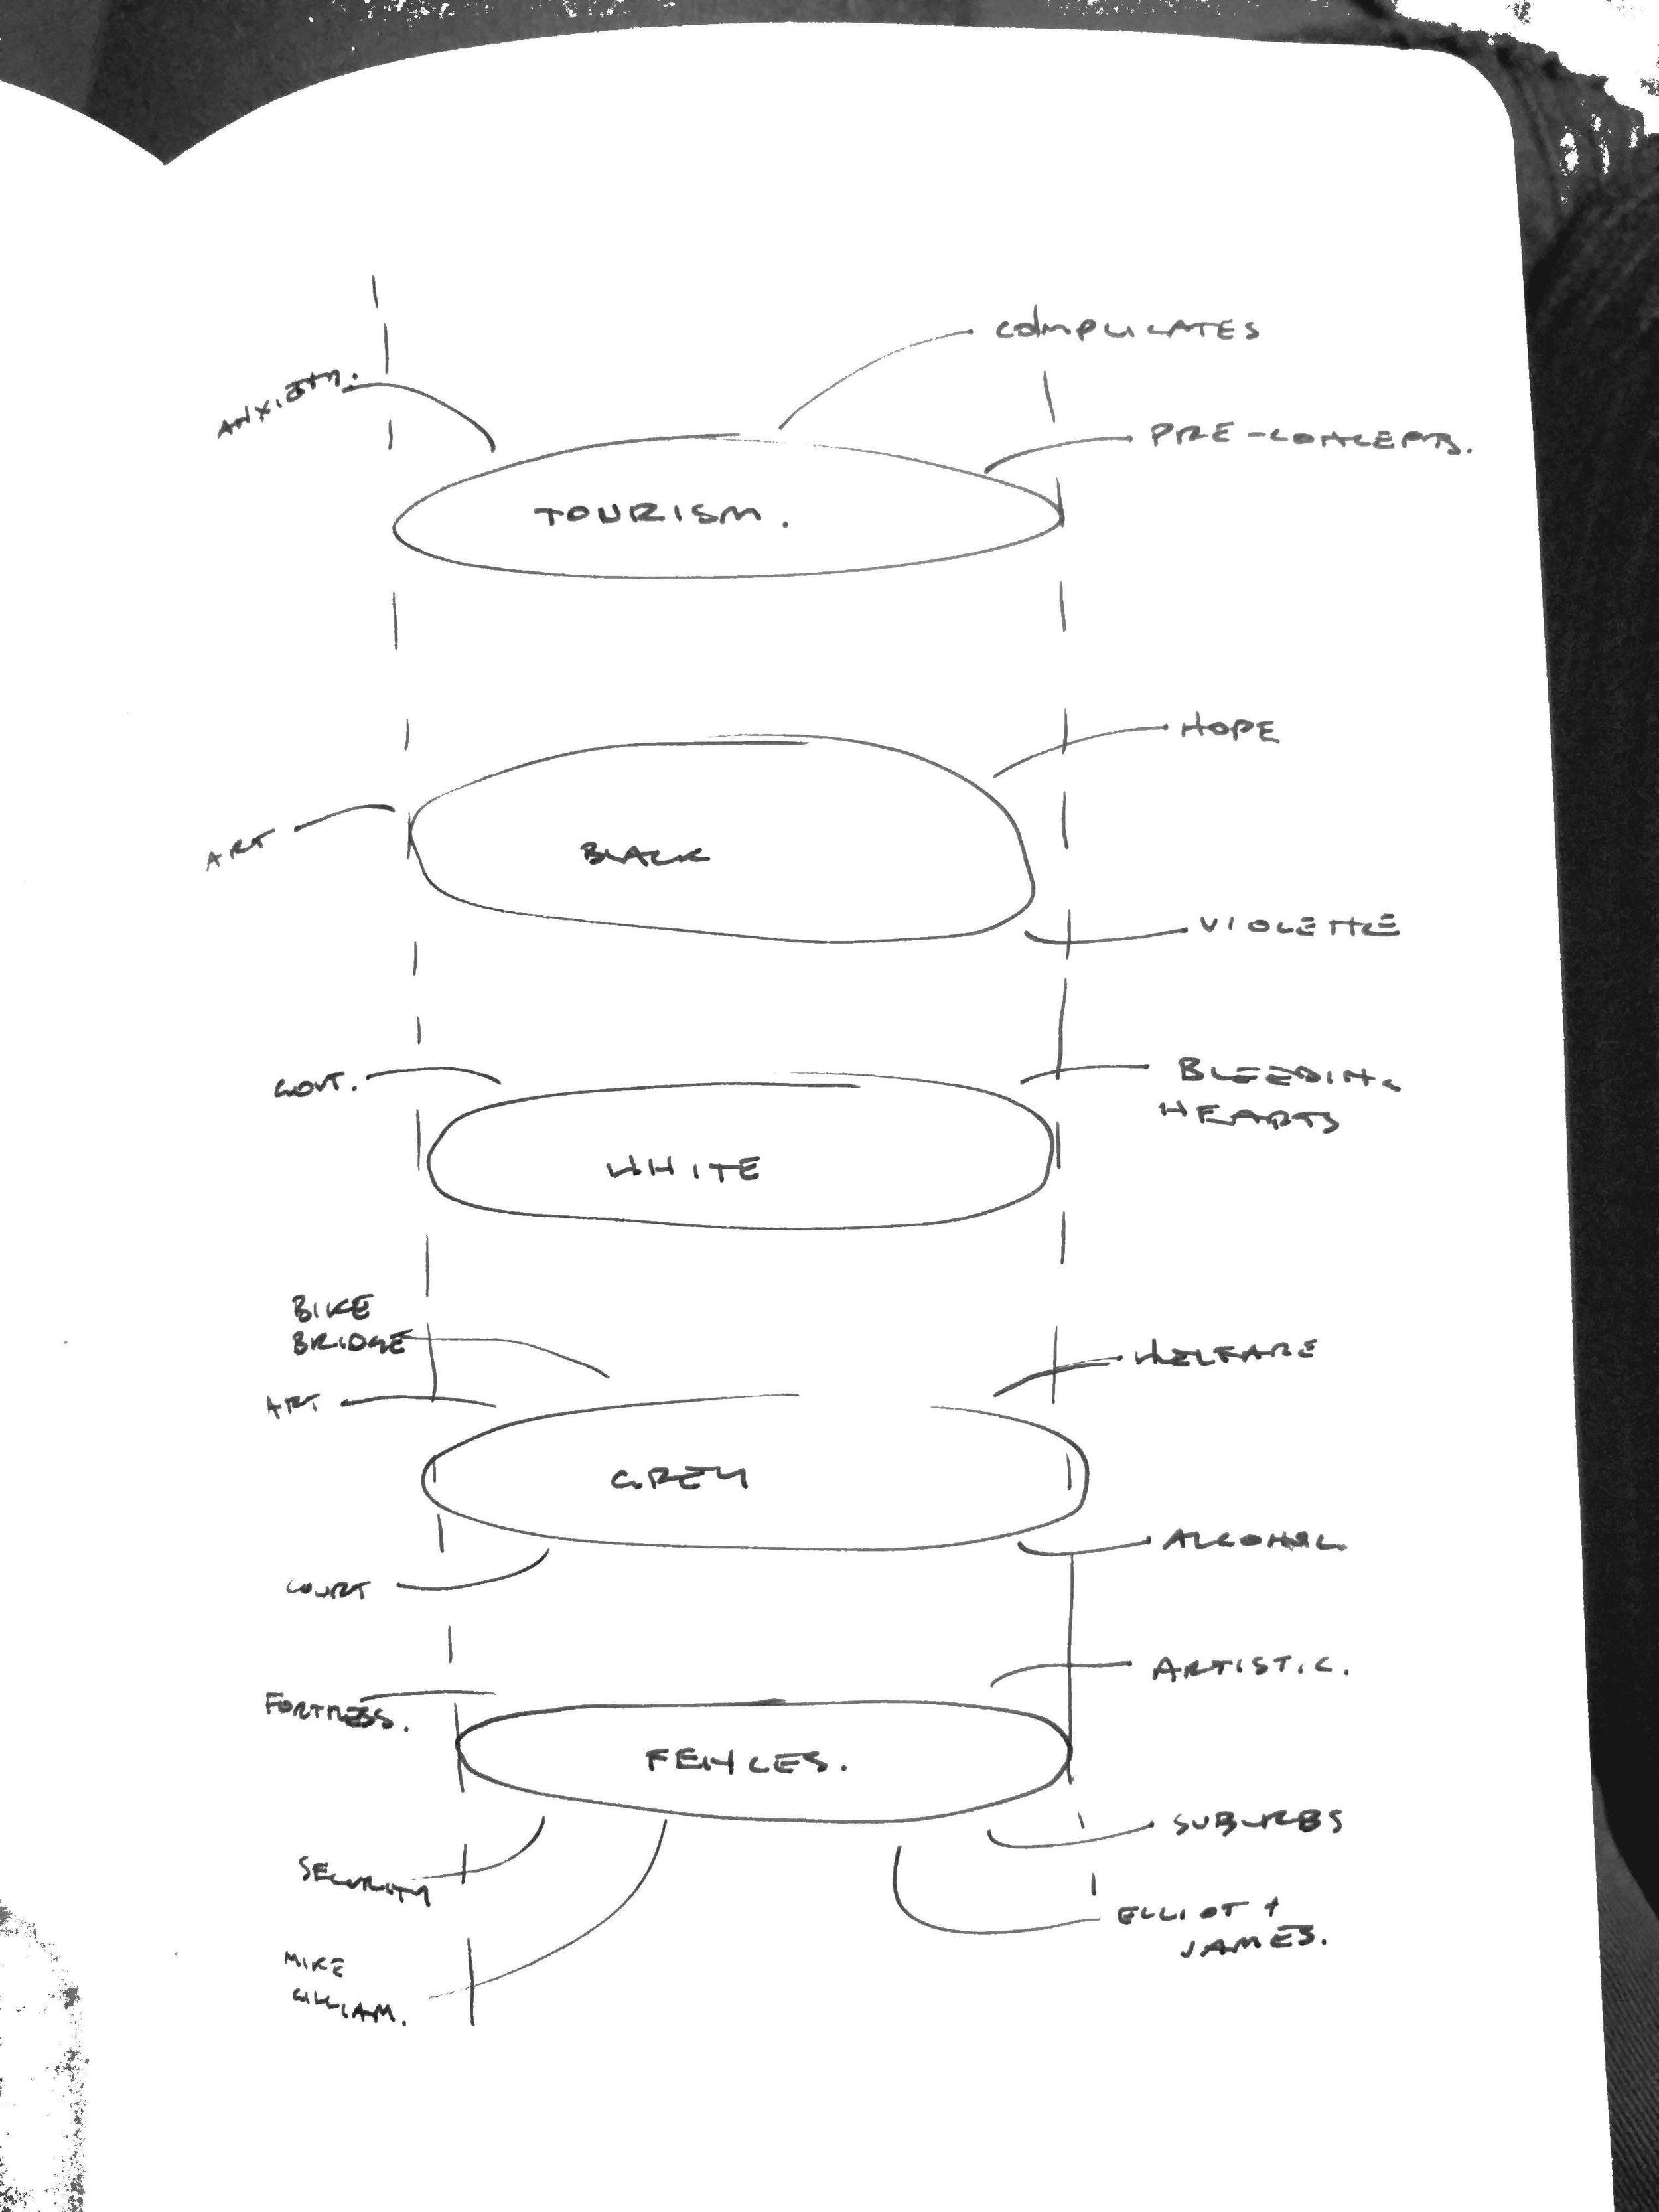 COMPLICATES
ANXIETY.
PRE-CONCEPTS.
TOURISM.
HOPE
ART
BLACK
VIOLENCE
GOVT.
BLEEDING
HEARTS
WHITE
BIKE
BRIDGE
WELFARE
ART
GREY
ALCOHOL
COURT
ARTISTIC.
FORTRESS.
FENCES.
SUBURBS
SECURITY
ELLIOT +
JAMES.
MIKE